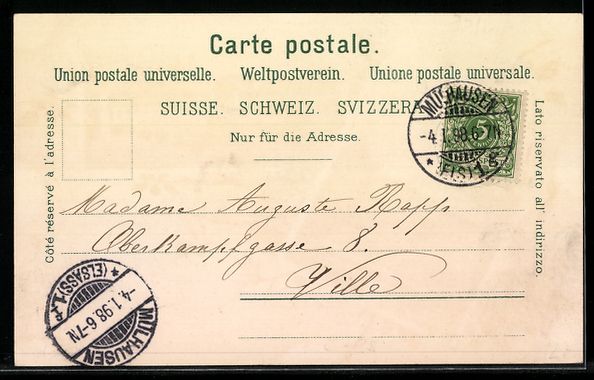 Carte postale.
Union postale universelle. Weltpostverein. Unione postale universale.
SUISSE. SCHWEIZ. SVIZZERA
Nur für die Adresse.
Côté réservé à l'adresse.
Lato riservato all' indirizzo.
MÜLHAUSEN
-4.1.98.6-7N
* (ELS) 1.g.
5
Madame Auguste Rapp
Oberkampfgasse 8.
Ville
* (ELSASS) 1.
-4.1.98.6-7N
MÜLHAUSEN